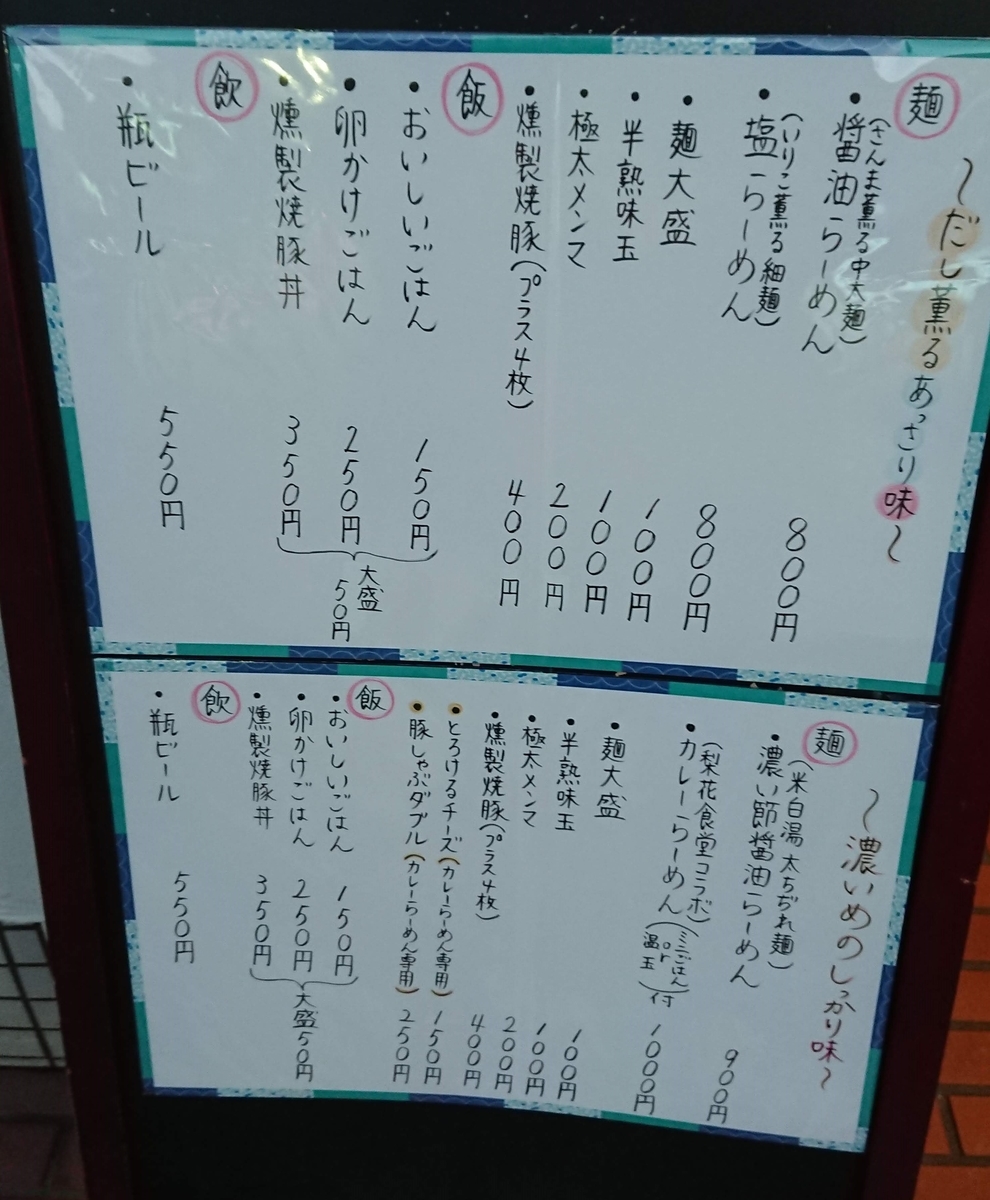 ～だし薫るあっさり味～
麺
(さんま薫る中太麺)
・醤油らーめん 800円
(いりこ薫る細麺)
・塩らーめん 800円
・麺大盛 100円
・半熟味玉 100円
・極太メンマ 200円
・燻製焼豚(プラス4枚) 400円
飯
・おいしいごはん 150円
・卵かけごはん 250円
・燻製焼豚丼 350円
大盛
50円
飲
・瓶ビール 550円
～濃いめのしっかり味～
麺
(米白湯 太ちぢれ麺)
・濃い節醤油らーめん 900円
(梨花食堂コラボ)
・カレーらーめん(ミニごはんor温玉)付 1000円
・麺大盛 100円
・半熟味玉 100円
・極太メンマ 200円
・燻製焼豚(プラス4枚) 400円
・とろけるチーズ(カレーらーめん専用) 150円
・豚しゃぶダブル(カレーらーめん専用) 250円
飯
・おいしいごはん 150円
・卵かけごはん 250円
・燻製焼豚丼 350円
大盛50円
飲
・瓶ビール 550円